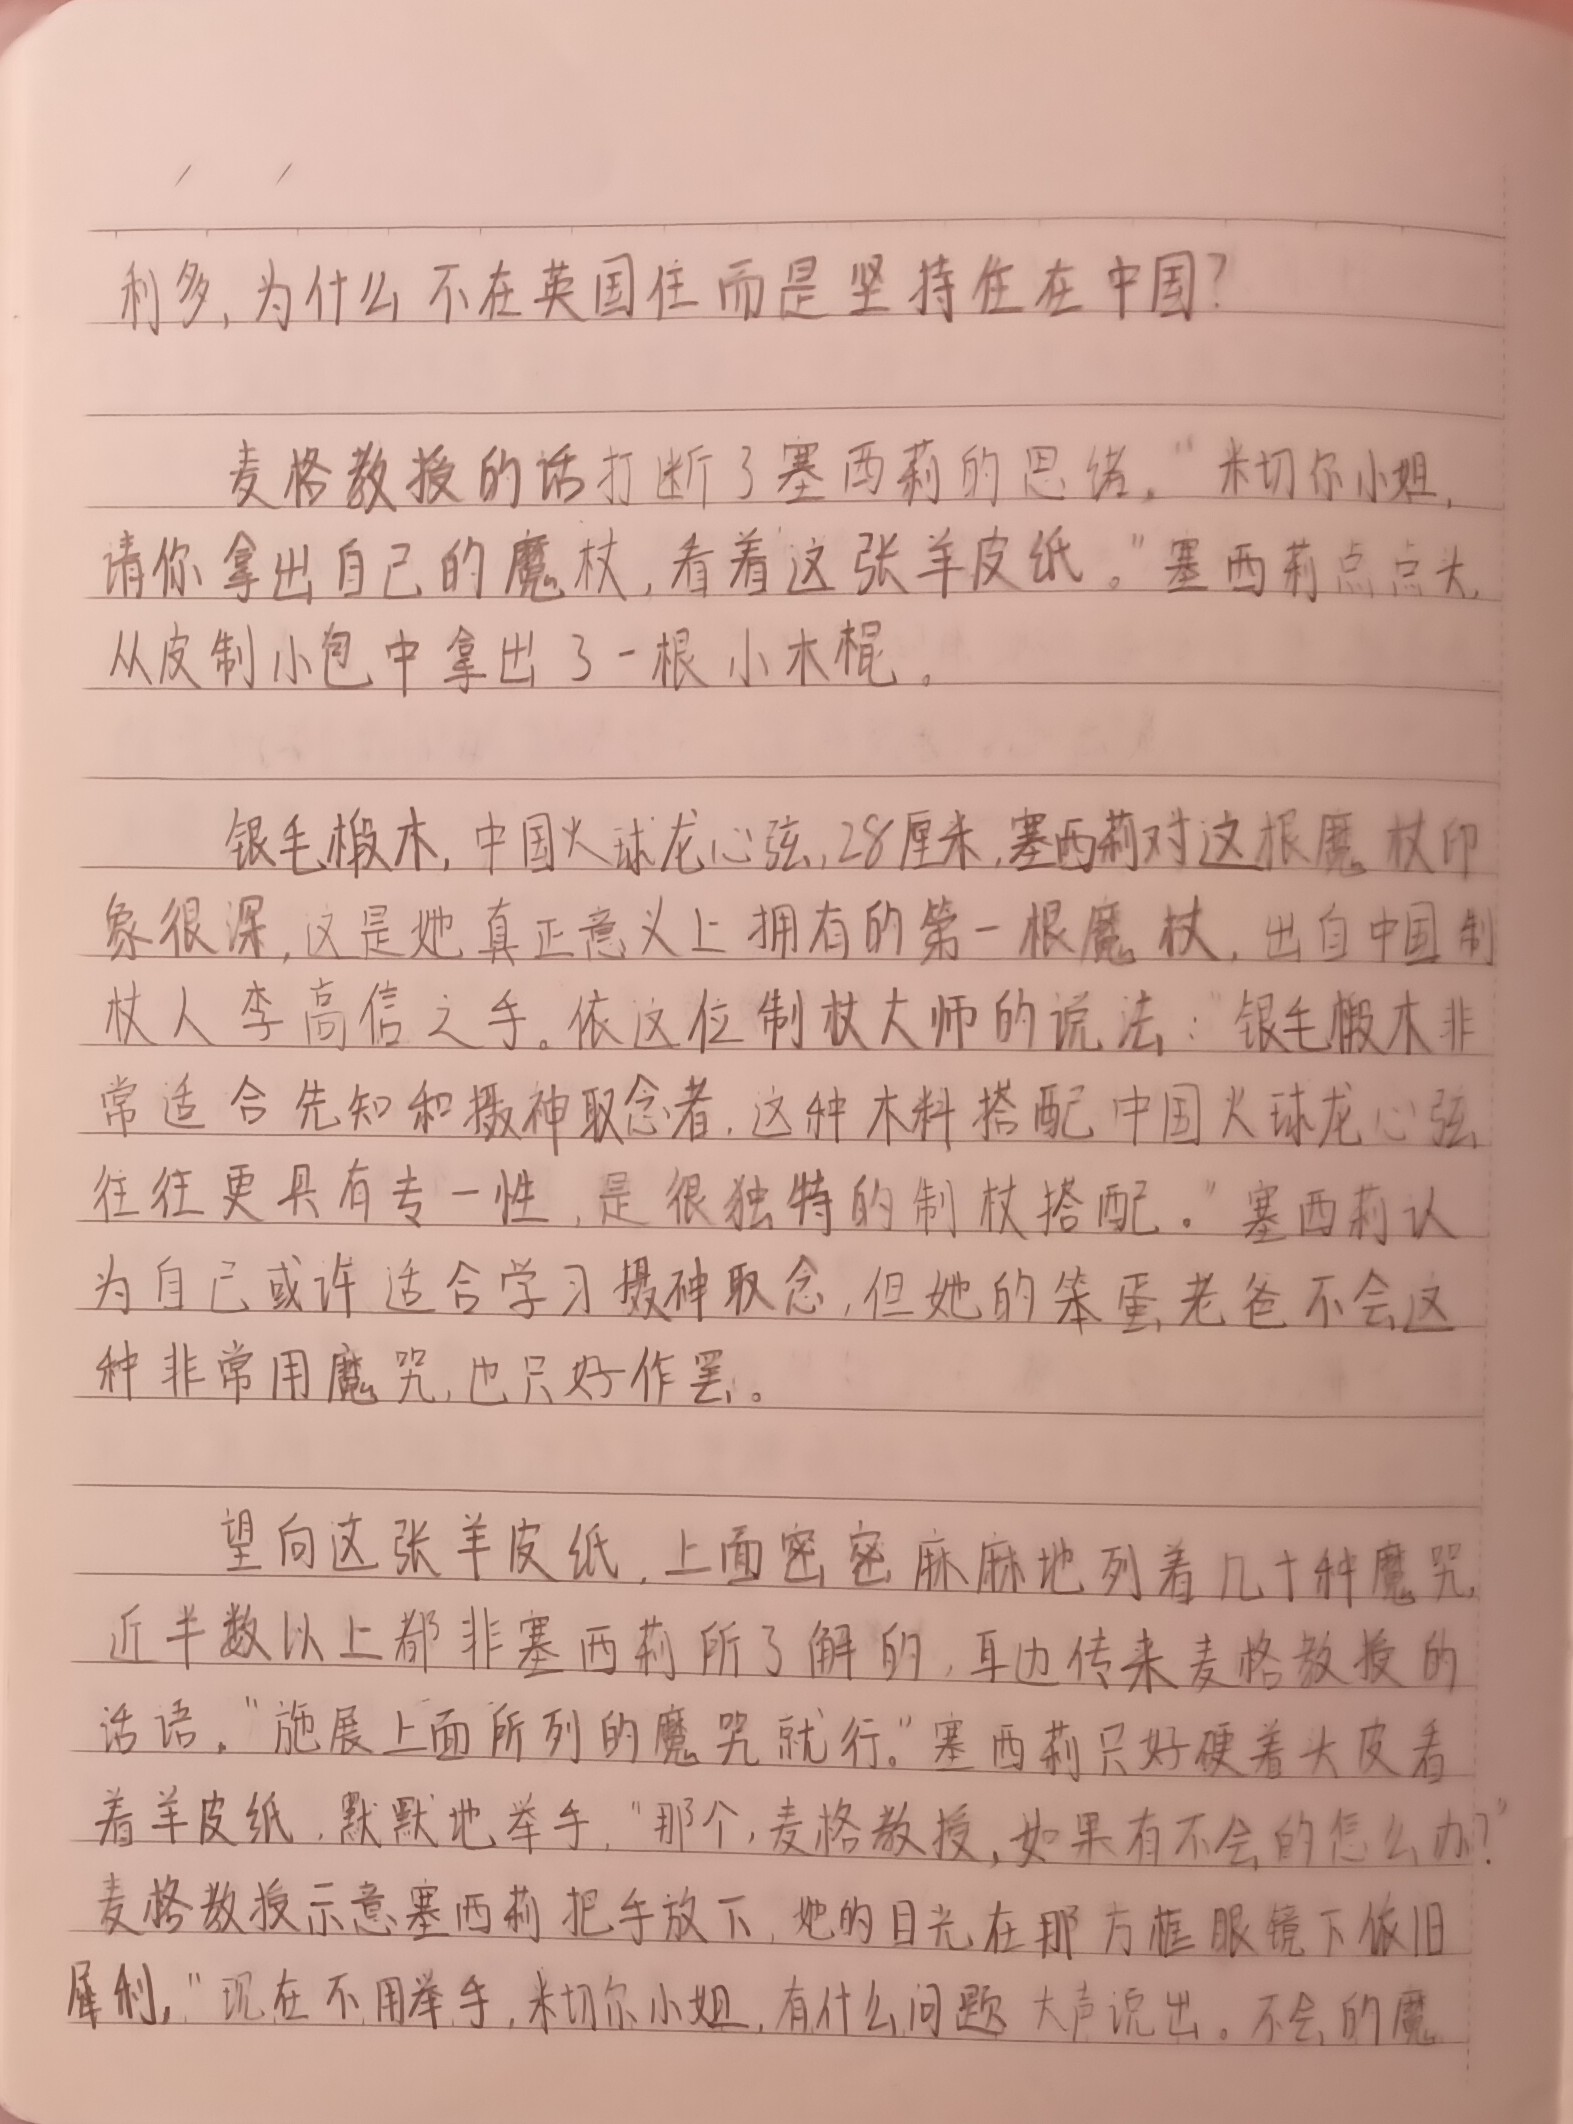 利多，为什么不在英国住而是坚持住在中国？
麦格教授的话打断了塞西莉的思绪，“米切尔小姐，
请你拿出自己的魔杖，看着这张羊皮纸。”塞西莉点点头，
从皮制小包中拿出了一根小木棍。
银毛椴木，中国火球龙心弦，28厘米，塞西莉对这根魔杖印
象很深，这是她真正意义上拥有的第一根魔杖，出自中国制
杖人李高信之手。依这位制杖大师的说法：“银毛椴木非
常适合先知和摄神取念者，这种木料搭配中国火球龙心弦
往往更具有专一性，是很独特的制杖搭配。”塞西莉认
为自己或许适合学习摄神取念，但她的笨蛋老爸不会这
种非常用魔咒，也只好作罢。
望向这张羊皮纸，上面密密麻麻地列着几十种魔咒，
近半数以上都非塞西莉所了解的，耳边传来麦格教授的
话语。“施展上面所列的魔咒就行。”塞西莉只好硬着头皮看
着羊皮纸，默默地举手，“那个，麦格教授，如果有不会的怎么办？”
麦格教授示意塞西莉把手放下，她的目光在那方框眼镜下依旧
犀利，“现在不用举手，米切尔小姐，有什么问题大声说出。不会的魔